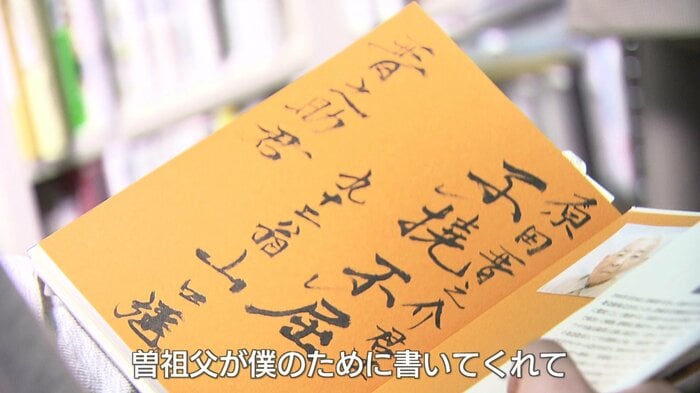 原田晋之介君
不撓不屈
九十二翁 山口彊
晋之助君
曽祖父が僕のために書いてくれて